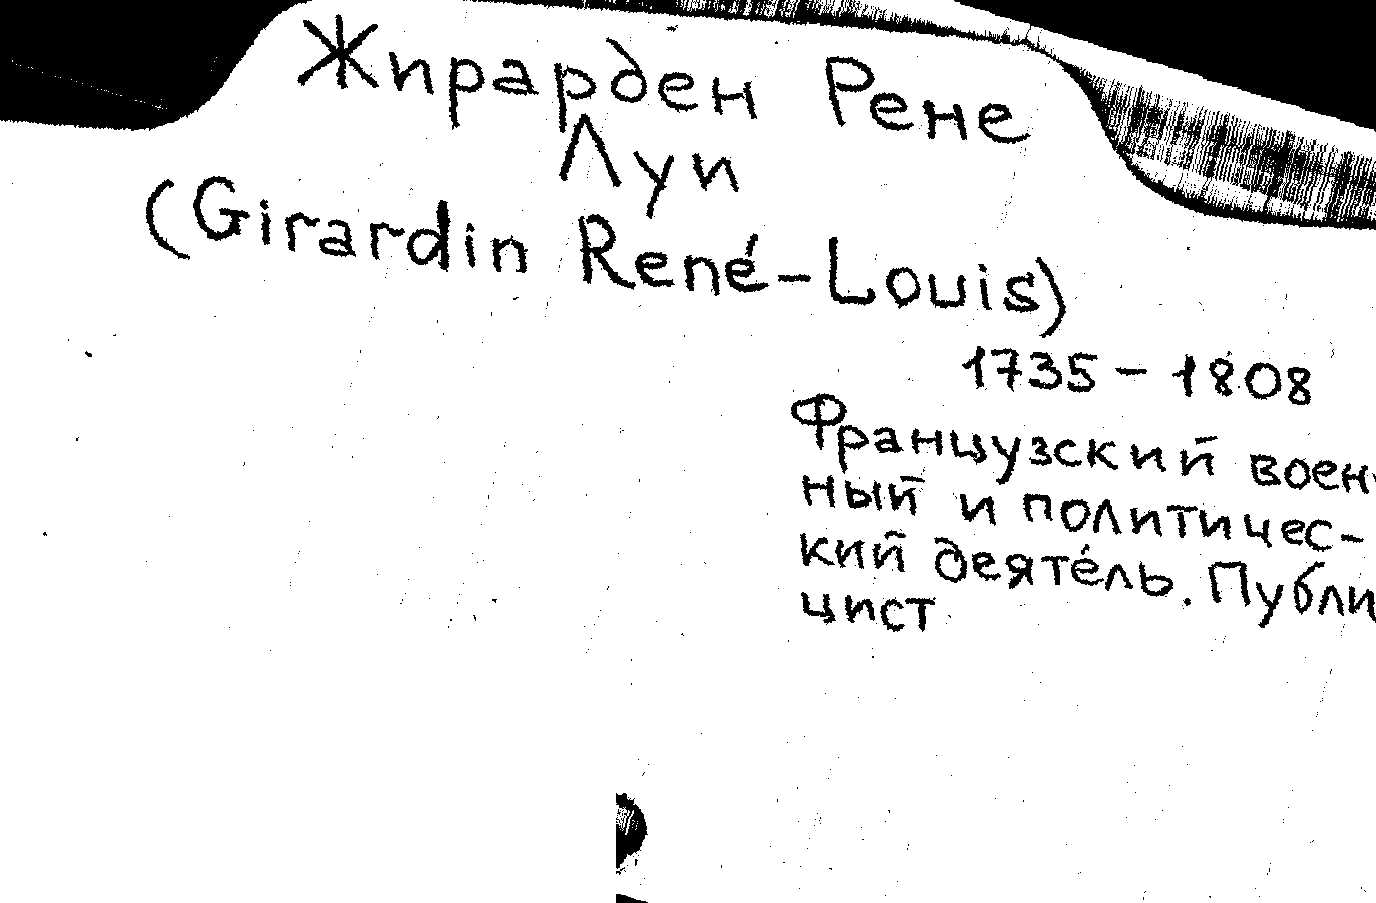 Жирарден Рене
Луи
(Girardin René-Louis)
1735-1808
Французский воен-
ный и политичес-
кий деятель. Публи
цист